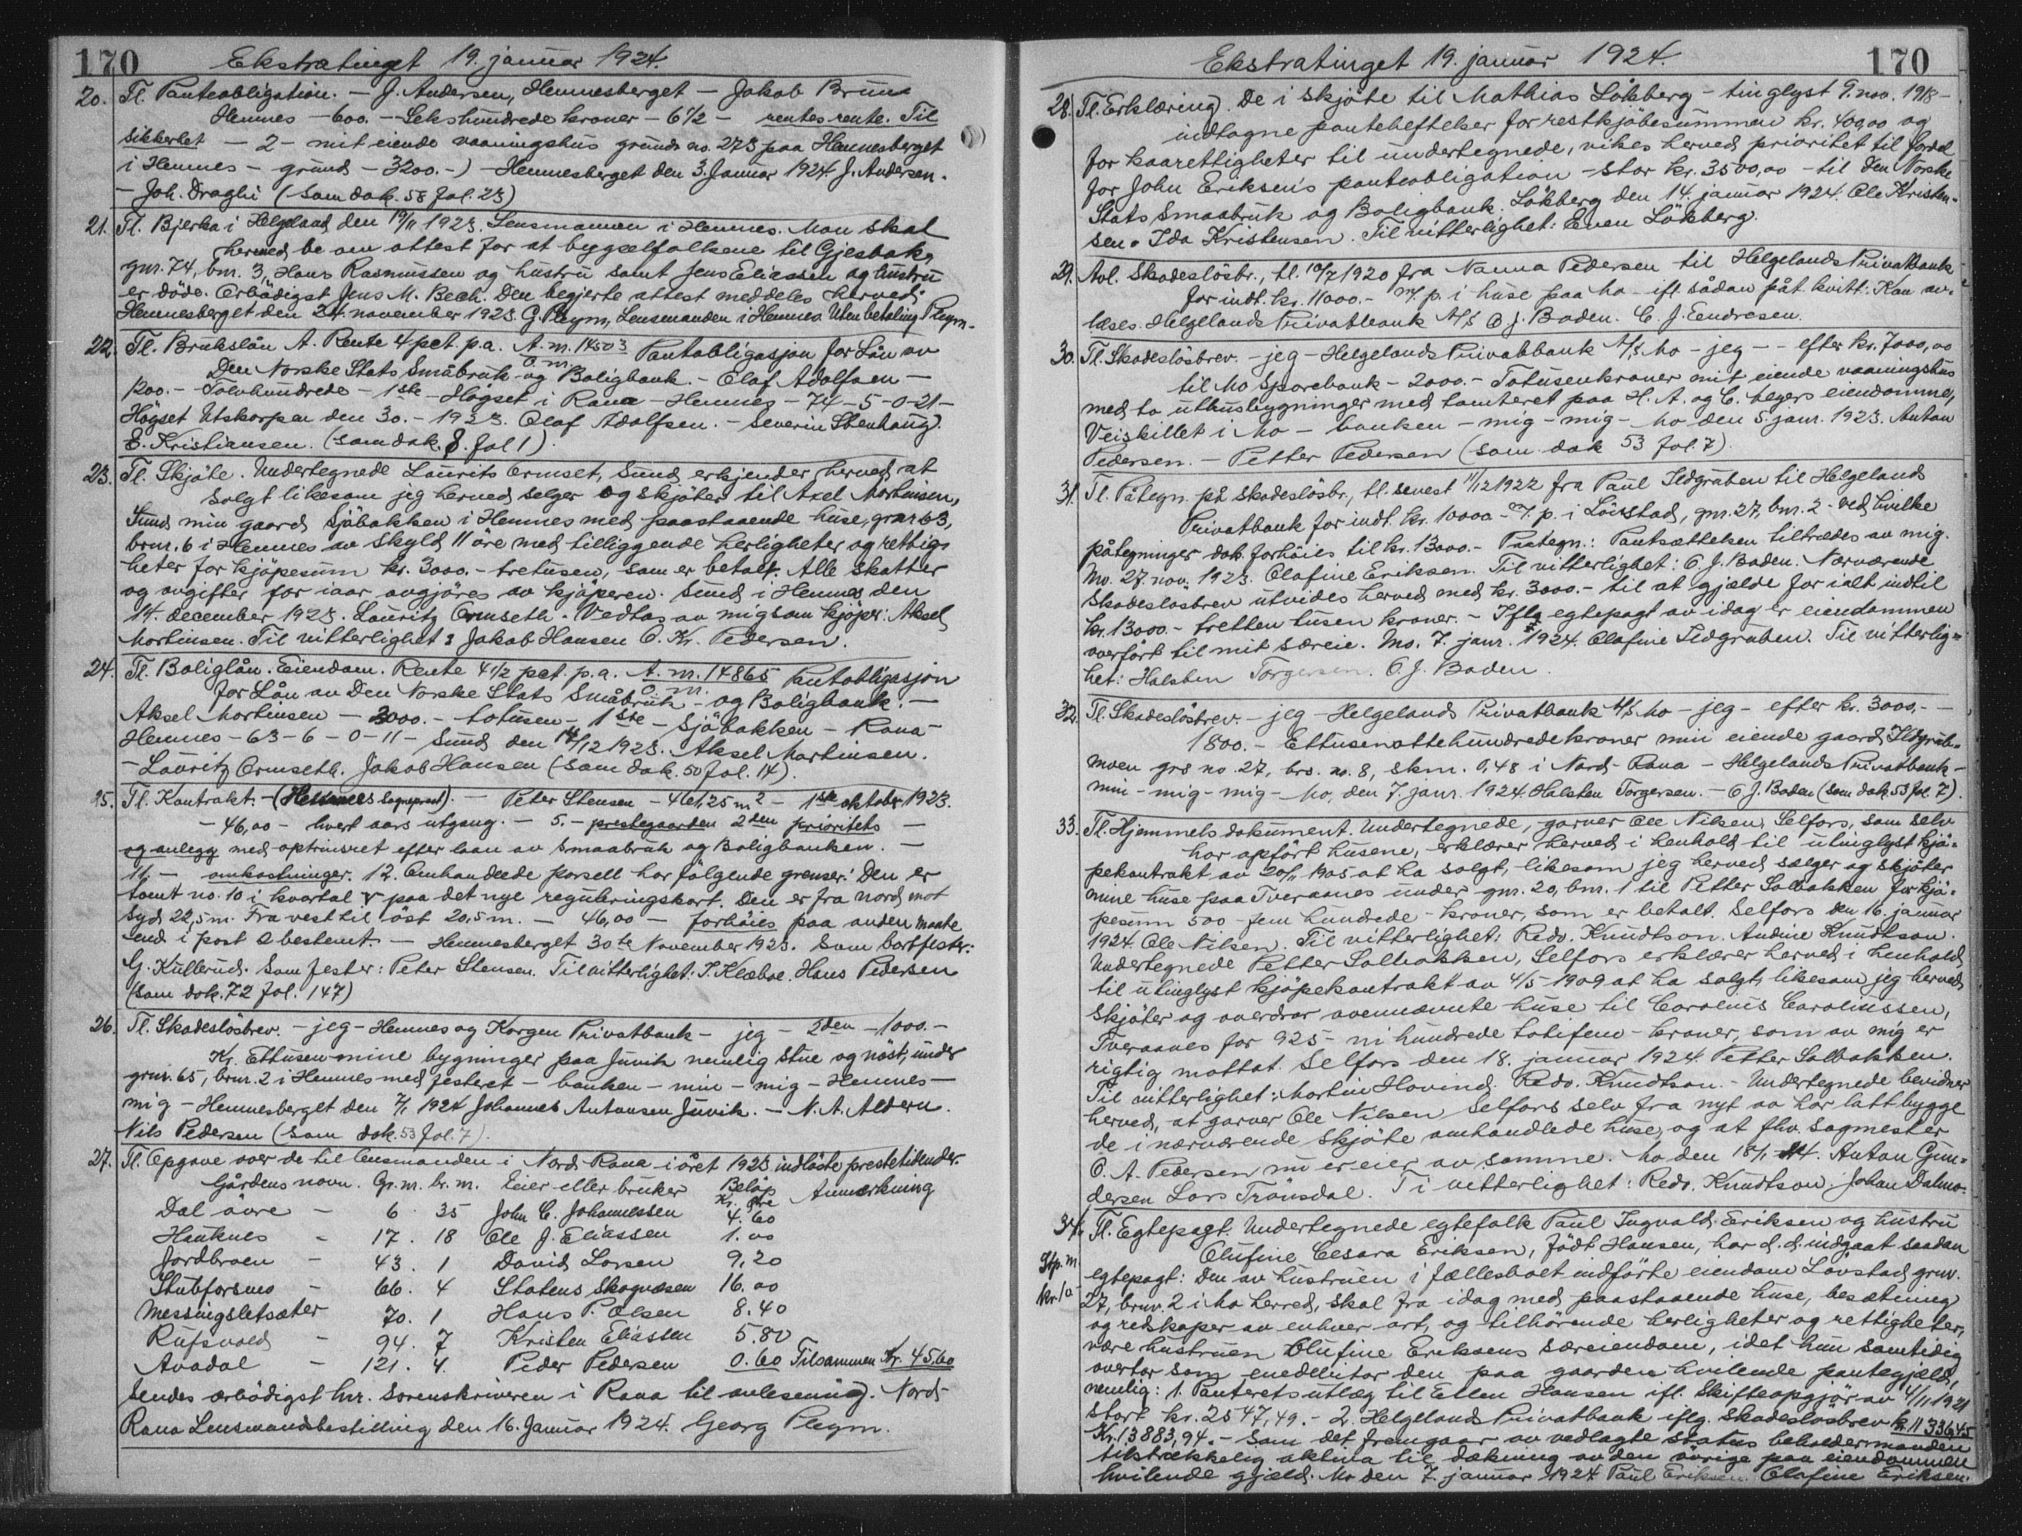 170
Ekstratinget 19. januar 1924.
20. Tl. Panteobligation. – J. Andersen, Hemnesberget – Jakob Bruun
Hemnes – 600. – Sekshundrede kroner – 6 1/2 – rentes rente. Til
sikkerhet – 2 – mit eiende vaaningshus grunds no. 273 paa Hemnesberget
i Hemnes – grund – 3200. –) – Hemnesberget den 3. Januar 1924 J. Andersen.
– Joh. Draghi (Som dok. 58 fol. 23)
21. Tl. Bjerka i Helgeland den 19/11 1923. Lensmannen i Hemnes. Man skal
herved be om attest for at bygselfolkene til Gjesbak,
gnr. 74, bnr. 3, Hans Rasmussen og hustru samt Jens Eliassen og hustru
er døde. Erbødigst Jens M. Bech. Den begjerte attest meddeles herved.
Hemnesberget den 24. november 1923 G. Pleym, Lensmanden i Hemnes. Uten betaling Pleym.
22. Tl. Brukslån A. Rente 4 pct. p.a. A. m. 14503 Pantobligasjon for Lån av
O. m.
Den Norske Stats Småbruk- og Boligbank. – Olaf Adolfsen –
1200. – Tolvhundrede – 1ste – Høgset i Rana – Hemnes – 74 – 5 – 0 – 21 –
Høgset Utskarpen den 30. – 1923. Olaf Adolfsen. – Severin Stenhaug.
E. Kristiansen. (som dok. 8. fol 1).
23. Tl. Skjøte. Undertegnede Laurits Ormset, Sund, erkjender herved at
solgt likesom jeg herved selger og skjøter til Axel Martinsen,
Sund min gaard Sjøbakken i Hemnes med paastaaende huse, gnr 63,
brnr. 6 i Hemnes av skyld 11 øre med tilliggende herligheter og rettig-
heter for kjøpesum kr. 3000. – tretusen, som er betalt. Alle skatter
og avgifter for iaar avgjøres av kjøperen. Sund i Hemnes den
14. december 1923. Lauritz Ormseth. Vedtas av mig som kjøper: Aksel
Martinsen. Til vitterlighet: Jakob Hansen O. Kr. Pedersen.
24. Tl. Boliglån. Eiendom. Rente 4 1/2 pct. p.a. A. m. 14865 Pantobligasjon
O. m.
for Lån av Den Norske Stats Småbruk- og Boligbank. –
Aksel Martinsen – 2000. – totusen – 1ste – Sjøbakken – Rana –
Hemnes – 63 – 6 – 0 – 11 – Sund den 14/12 1923. Aksel Martinsen.
– Lauritz Ormseth. Jakob Hansen (som dok. 50 fol. 14).
25. Tl. Kontrakt. – (Hemnes Sogneprest). – Peter Stensen – 461,25 m2 – 1ste oktober 1923.
– 46,00 – hvert aars utgang. – 5. – prestegaarden 2den prioritets –
og anlegg med optrinsret efter laan av Smaabruk og Boligbanken. –
11. – omkostninger. 12. Omhandlede parsell har følgende grenser: Den er
tomt no. 10 i kvartal V paa det nye reguleringskort. Den er fra nord mot
syd 22,5 m. Fra vest til øst 20,5 m. – 46,00 – forhøies paa anden maate
end i post 2 bestemt. – Hemnesberget 30te November 1923. Som bortfester:
G. Kullerud. Som fester: Peter Stensen. Til vitterlighet: T. Klæboe. Hans Pedersen
(som dok. 72 fol. 147)
26. Tl. Skadesløsbrev. – jeg – Hemnes og Korgen Privatbank – jeg – 2den – 1000. –
Kr. Ettusen – mine bygninger paa Juvik nemlig stue og nøst, under
grnr. 65, brnr. 2 i Hemnes med festeret – banken – min – mig – Hemnes –
mig – Hemnesberget den 7/1 1924 Johannes Antonsen Juvik. – N. A. Aldern.
Nils Pedersen (som dok. 53 fol. 7).
27. Tl. Opgave over de til lensmanden i Nord-Rana i året 1923 indløste prestetiender.
Gårdens navn. Gr. nr. br. nr. Eier eller bruker Beløp Anmerkning
Kr. Øre
Dal øvre – 6. 35 John C. Johannessen 4.60
Hauknes – 17. 18 Ole J. Eliassen 1.00
Jordbroen – 43. 1 David Larsen 9,20
Stubforsmo – 66. 4 Statens Skogvæsen 16.00
Messingsletsæter 70. 1 Hans P. Olsen 8.40
Rufsvold – 94. 7 Kristen Eliassen 5.80
Avadal – 121. 4. Peder Pedersen 0.60 Tilsammen Kr. 45,60
Sendes ærbødigst hr. Sorenskriveren i Rana til avlesning. Nord-
Rana Lensmandsbestilling den 16. Januar 1924. Georg Pleym.
170
Ekstratinget 19. januar 1924.
28. Tl. Erklæring. De i skjøte til Mathias Løkberg – tinglyst 9. nov. 1918 –
indtagne pantehæftelser for restkjøbesummen kr. 400,00 og
for kaarettigheter til undertegnede, vikes herved prioritet til fordel
for John Eriksen's panteobligation – stor kr. 3500,00 – til Den Norske
Stats Smaabruk og Boligbank. Løkberg den 14. januar 1924. Ole Kristen-
sen. Ida Kristensen. Til vitterlighet: Even Løkberg.
29. Avl. Skadesløsbr., tl. 10/7 1920 fra Nanna Pedersen til Helgelands Privatbank
for indt. kr. 11000. – m. p. i huse paa Mo – ifl sådan påt. kvitt: Kan av-
læses. Helgelands Privatbank A/S O J. Boden. C. J. Eendresen.
30. Tl. Skadesløsbrev. – jeg – Helgelands Privatbank A/S Mo – jeg – – efter kr. 7000,00
til Mo Sparebank – 2000. – Totusenkroner mit eiende vaaningshus
med to uthusbygninger med tomteret paa H. A. og C. Meyers eiendomme,
Veiskillet i Mo – banken – mig – mig – Mo den 5. janr. 1923. Anton
Pedersen. – Petter Pedersen (som dok 53 fol. 7)
31. Tl. Påtegn. på skadesløsbr., tl. senest 11/12 1922 fra Paul Ildgruben til Helgeland
Privatbank for indt. kr. 10000 – m. p. i Løvstad, gnr. 27, bnr. 2 – ved hvilke
påtegninger dok. forhøies til kr. 13000. – Paategn.: Pantsættelsen tiltrædes av mig.
Mo. 27. nov. 1923. Olafine Eriksen. Til vitterlighet: O. J. Boden. Nærværende
skadesløsbrev utvides herved med kr. 3000. – til at gjælde for ialt indtil
kr. 13000. – tretten tusen kroner. – Iflg egtepagt av idag er eiendommen
overført til mit særeie. Mo. 7. janr. 1924. Olafine Ildgruben. Til vitterlig-
het: Halsten Torgersen. O. J. Boden.
32. Tl. Skadesløsbrev. – jeg – Helgelands Privatbank A/S Mo – jeg – efter kr. 3000. – –
1800. – Ettusenottehundredekroner min eiende gaard Ildgrub-
moen grs no. 27, brs. no. 8, skm. 0,48 i Nord-Rana – Helgelands Privatbank –
min – mig – mig – Mo, den 7. janr. 1924. Halsten Torgersen. – O J. Boden (som dok. 53 fol. 7).
33. Tl. Hjemmelsdokument. Undertegnede, garver Ole Nilsen, Selfors, som selv
har opført husene, erklærer herved i henhold til utinglyst kjø-
pekontrakt av 20/1 1905 at ha solgt, likesom jeg herved sælger og skjøter
mine huse paa Tveraanes under gnr. 20, bnr. 1 til Petter Solbakken for kjø-
pesum 500 – fem hundrede – kroner, som er betalt. Selfors den 16. januar
1924. Ole Nilsen. Til vitterlighet: Redv. Knudtson. Andine Knudtson.
Undertegnede Petter Solbakken, Selfors erklærer herved i henhold
til utinglyst kjøpekontrakt av 4/5 – 1909 at ha solgt, likesom jeg herved
skjøter og overdrar ovennævnte huse til Carolius Caroliussen,
Tveraanes for 925 – ni hundrede totifem – kroner, som av mig er
rigtig mottat. Selfors den 18. januar 1924. Petter Solbakken.
Til vitterlighet: Martin Hovind. Redv. Knudtson. – Undertegnede bevidner
herved, at garver Ole Nilsen Selfors selv fra nyt av har latt bygge
de i nærværende skjøte omhandlede huse, og at fhv. sagmester
O. A. Pedersen nu er eier av samme. Mo den 18/1 – 24. Anton Gun-
dersen Lars Trønsdal. Til vitterlighet: Redv. Knudtson Johan Dalmo.
34. Tl. Egtepagt. Undertegnede egtefolk Paul Ingvald Eriksen og hustru
Stp. m.
kr. 10
Olufine Cesara Eriksen, født Hansen, har d. d. indgaat saadan
egtepagt: Den av hustruen i fællesboet indførte eiendom Løvstad grnr.
27, brnr. 2 i Mo herred, skal fra idag med paastaaende huse, besætning
og redskaper av enhver art, og tilhørende herligheter og rettigheter,
være hustruen Olufine Eriksens særeiendom, idet hun samtidig
overtar som enedebitor den paa gaarden hvilende pantegjæld,
nemlig: 1. Panteretsutlæg til Ellen Hansen ifl. Skifteopgjør av 4/11 1921
stort kr. 2547,49. – 2. Helgelands Privatbank iflg. Skadesløsbrev kr. 11336,45
Kr. 13883,94. – Som det fremgaar av vedlagte status beholder manden
tilstrækkelig aktiva til dækning av den øvrige paa eiendommen
hvilende gjæld. Mo den 7. januar 1924 Paul Eriksen. Olafine Eriksen.